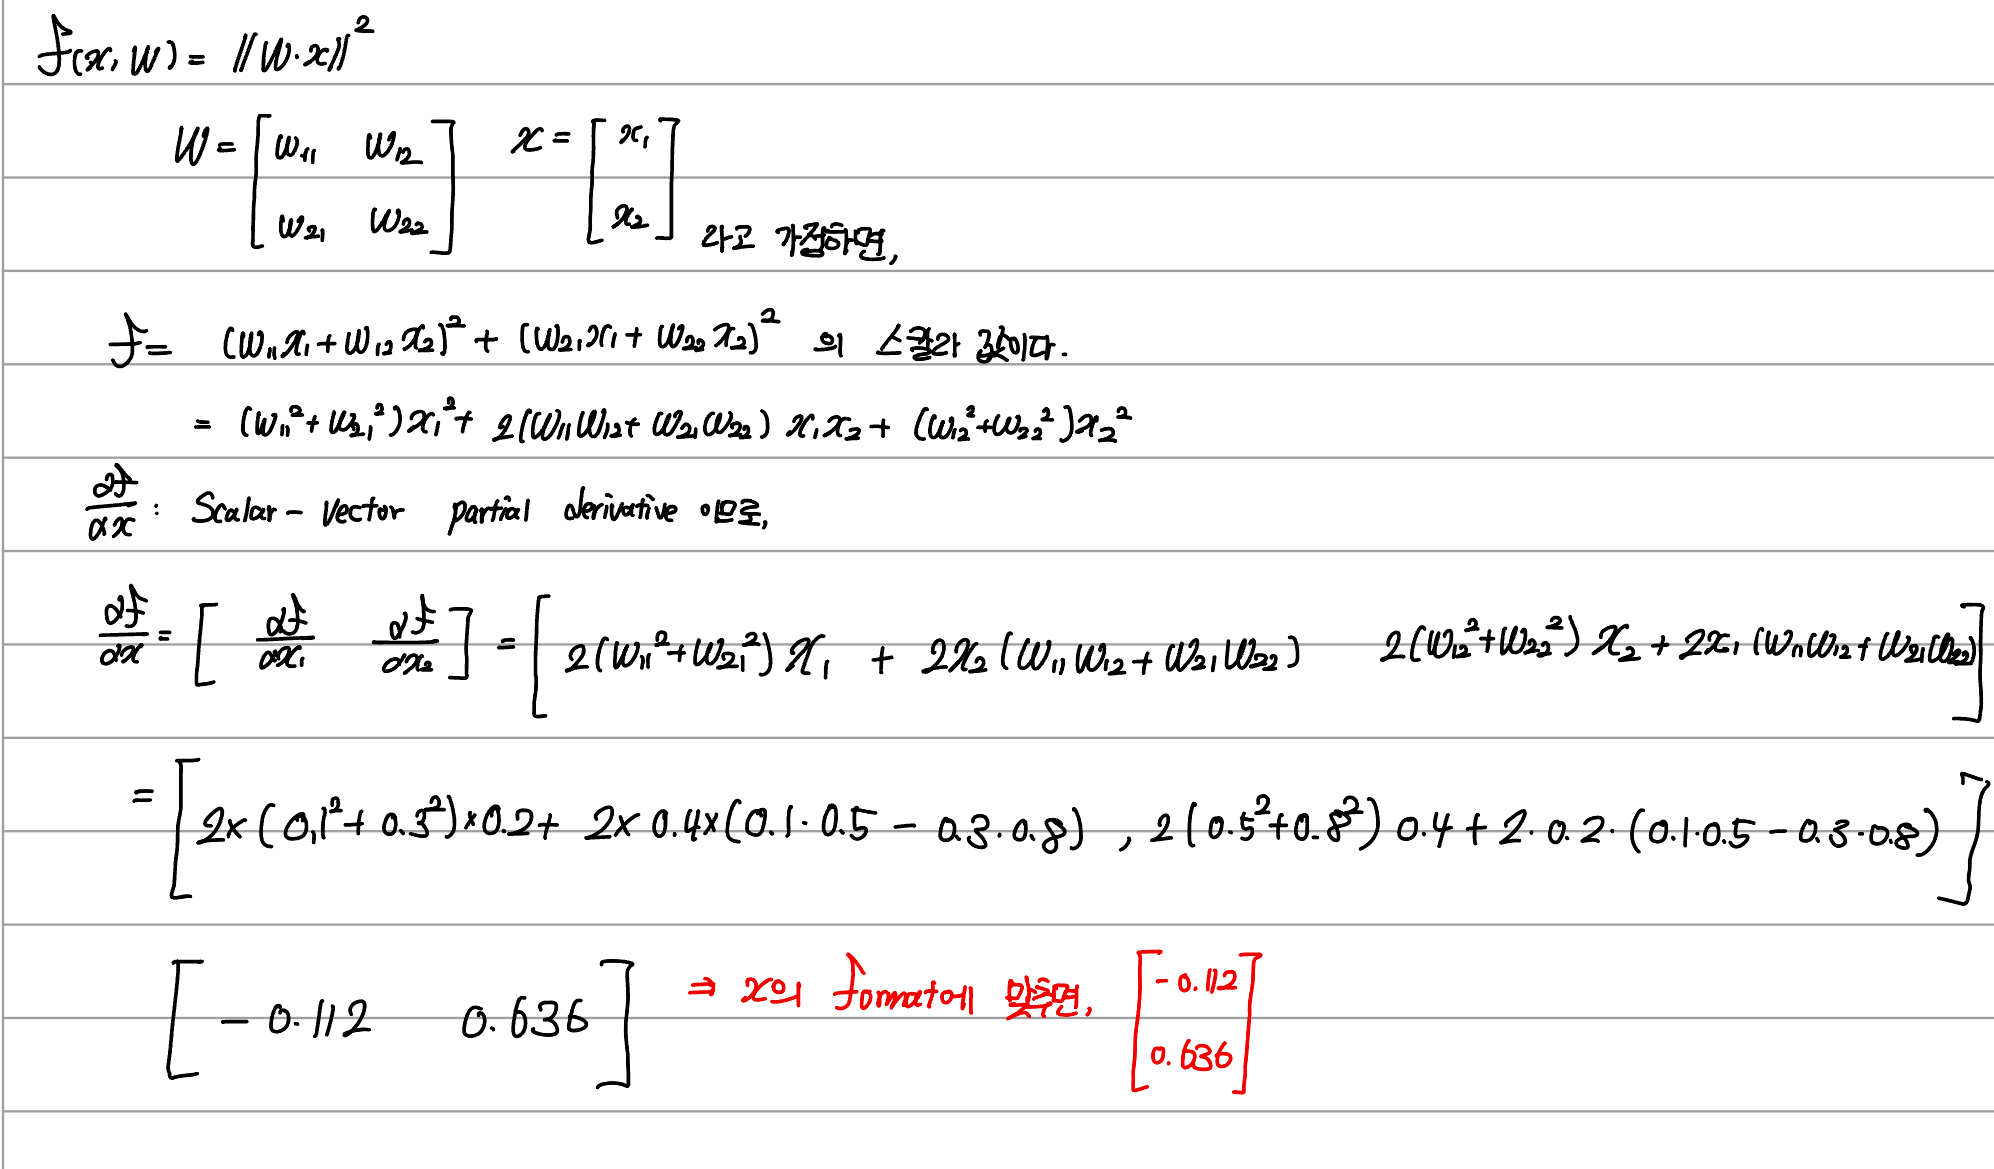 f(x, W) = ||W·x||²
W = [w₁₁ w₁₂ w₂₁ w₂₂] x = [x₁ x₂] 라고 가정하면,
f = (w₁₁x₁ + w₁₂x₂)² + (w₂₁x₁ + w₂₂x₂)² 의 스칼라 값이다.
= (w₁₁² + w₂₁²)x₁² + 2(w₁₁w₁₂ + w₂₁w₂₂) x₁x₂ + (w₁₂² + w₂₂²)x₂²
∂f/∂x : Scalar - Vector partial derivative 이므로,
∂f/∂x = [∂f/∂x₁ ∂f/∂x₂] = [2(w₁₁² + w₂₁²)x₁ + 2x₂(w₁₁w₁₂ + w₂₁w₂₂) 2(w₁₂² + w₂₂²)x₂ + 2x₁(w₁₁w₁₂ + w₂₁w₂₂)]
= [2×(0.1² + 0.3²)×0.2 + 2×0.4×(0.1·0.5 - 0.3·0.8) , 2(0.5² + 0.8²)0.4 + 2·0.2·(0.1·0.5 - 0.3·0.8)]
[-0.112 0.636] ⇒ x의 format에 맞추면, [-0.112 0.636]